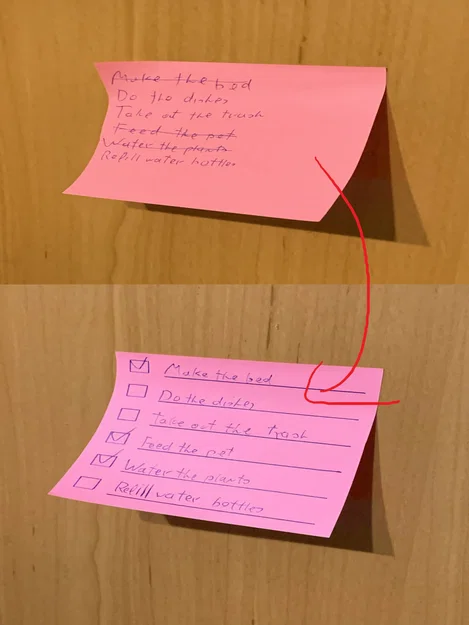 Make the bed
Do the dishes
Take out the trash
Feed the pet
Water the plants
Refill water bottles
Make the bed
Do the dishes
Take out the trash
Feed the pet
Water the plants
Refill water bottles